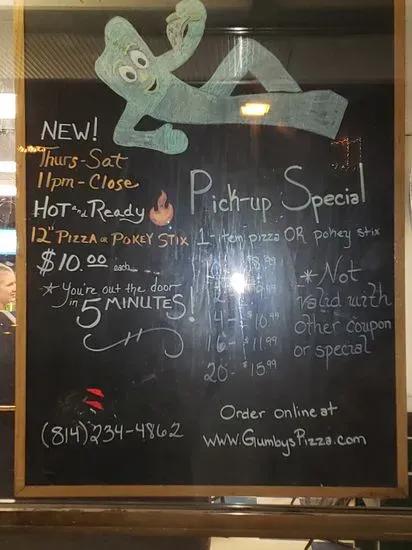 NEW!
Thurs-Sat
11pm-Close
HOT and Ready
12" PIZZA or POKEY STIX
$10.00 each
* You're out the door
in 5 MINUTES!
(814) 234-4862
Pick-up Special
1-item pizza OR pokey stix
14- $10.99
16- $11.99
20- $15.99
* Not
valid with
other coupon
or special
Order online at
www.GumbysPizza.com